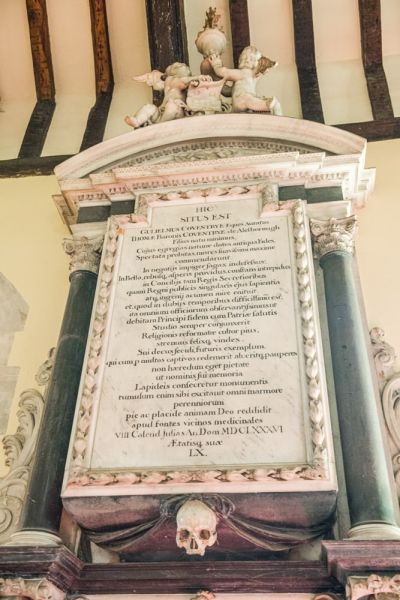 HIC
SITUS EST
GULIELMUS COVENTRYE Eques Auratus
THOMÆ Baronis COVENTRIÆ, de Alesborough
Filius natu minimus.
Cujus egregias animæ dotes antiqua fides,
Spectata probitas, mores suavissimi maxime
commendarunt
In negotijs impiger sagax indefessus;
In Bello, rebusq, asperis providus, constans intrepidus
in Concilijs tam Regis Secretioribus
quam Regni publicis singularis ejus sapientia
atq, ingenij acumen mire enituit.
et, quod in dubijs temporibus difficillimi est,
ita omnium officiorum observantissimus
debitam Principi fidem cum Patriæ salutis
Studio semper conjunxerit
Religionis reformatæ cultor pius,
strenuus felixq, vindex.
Sui decus seculi, futuris exemplum,
qui cum p multos captivos redemerit ab ære, inq, pauperes
non hæredum eget pietate
ut nominis sui memoria
Lapideis consecretur monumentis
tumulum enim sibi excitavit omni marmore
perenniorem
pie ac placide animam Deo reddidit
apud fontes vicinos medicinales
VIII Calend Julias An. Dom MDCLXXXVI
Ætatisq suæ
LX.